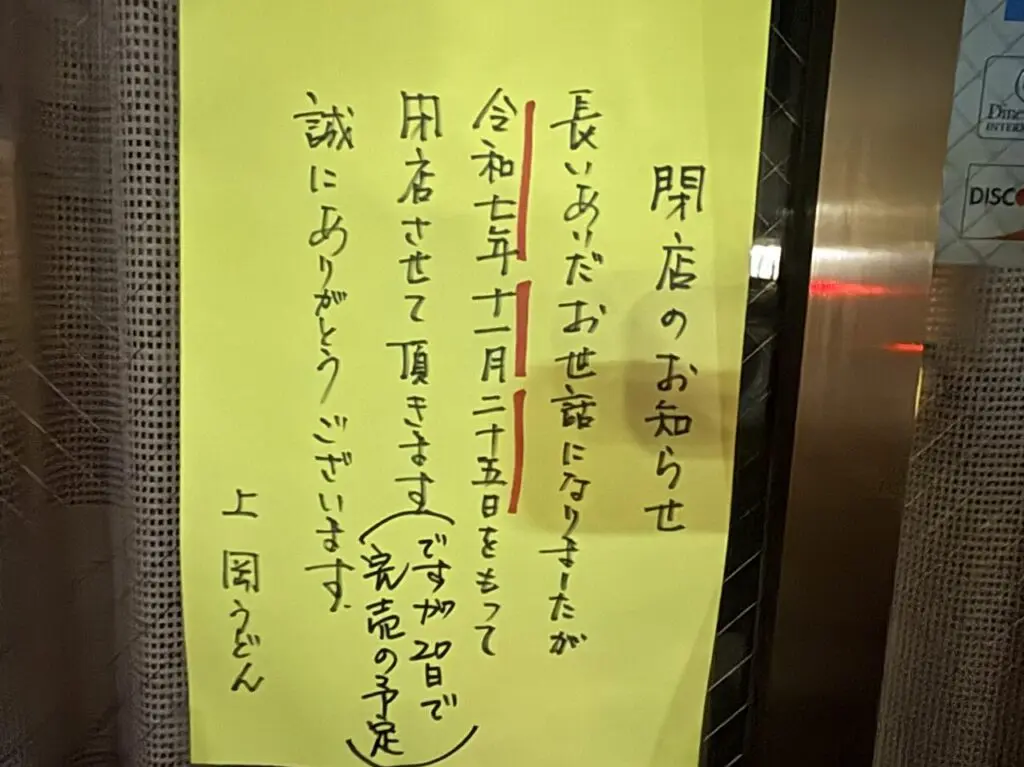 閉店のお知らせ
長いあいだお世話になりましたが
令和七年十一月二十五日をもって
閉店させて頂きます
(ですが20日で
完売の予定)
誠にありがとうございます。
上岡うどん
Diners
INTERN
DISCO